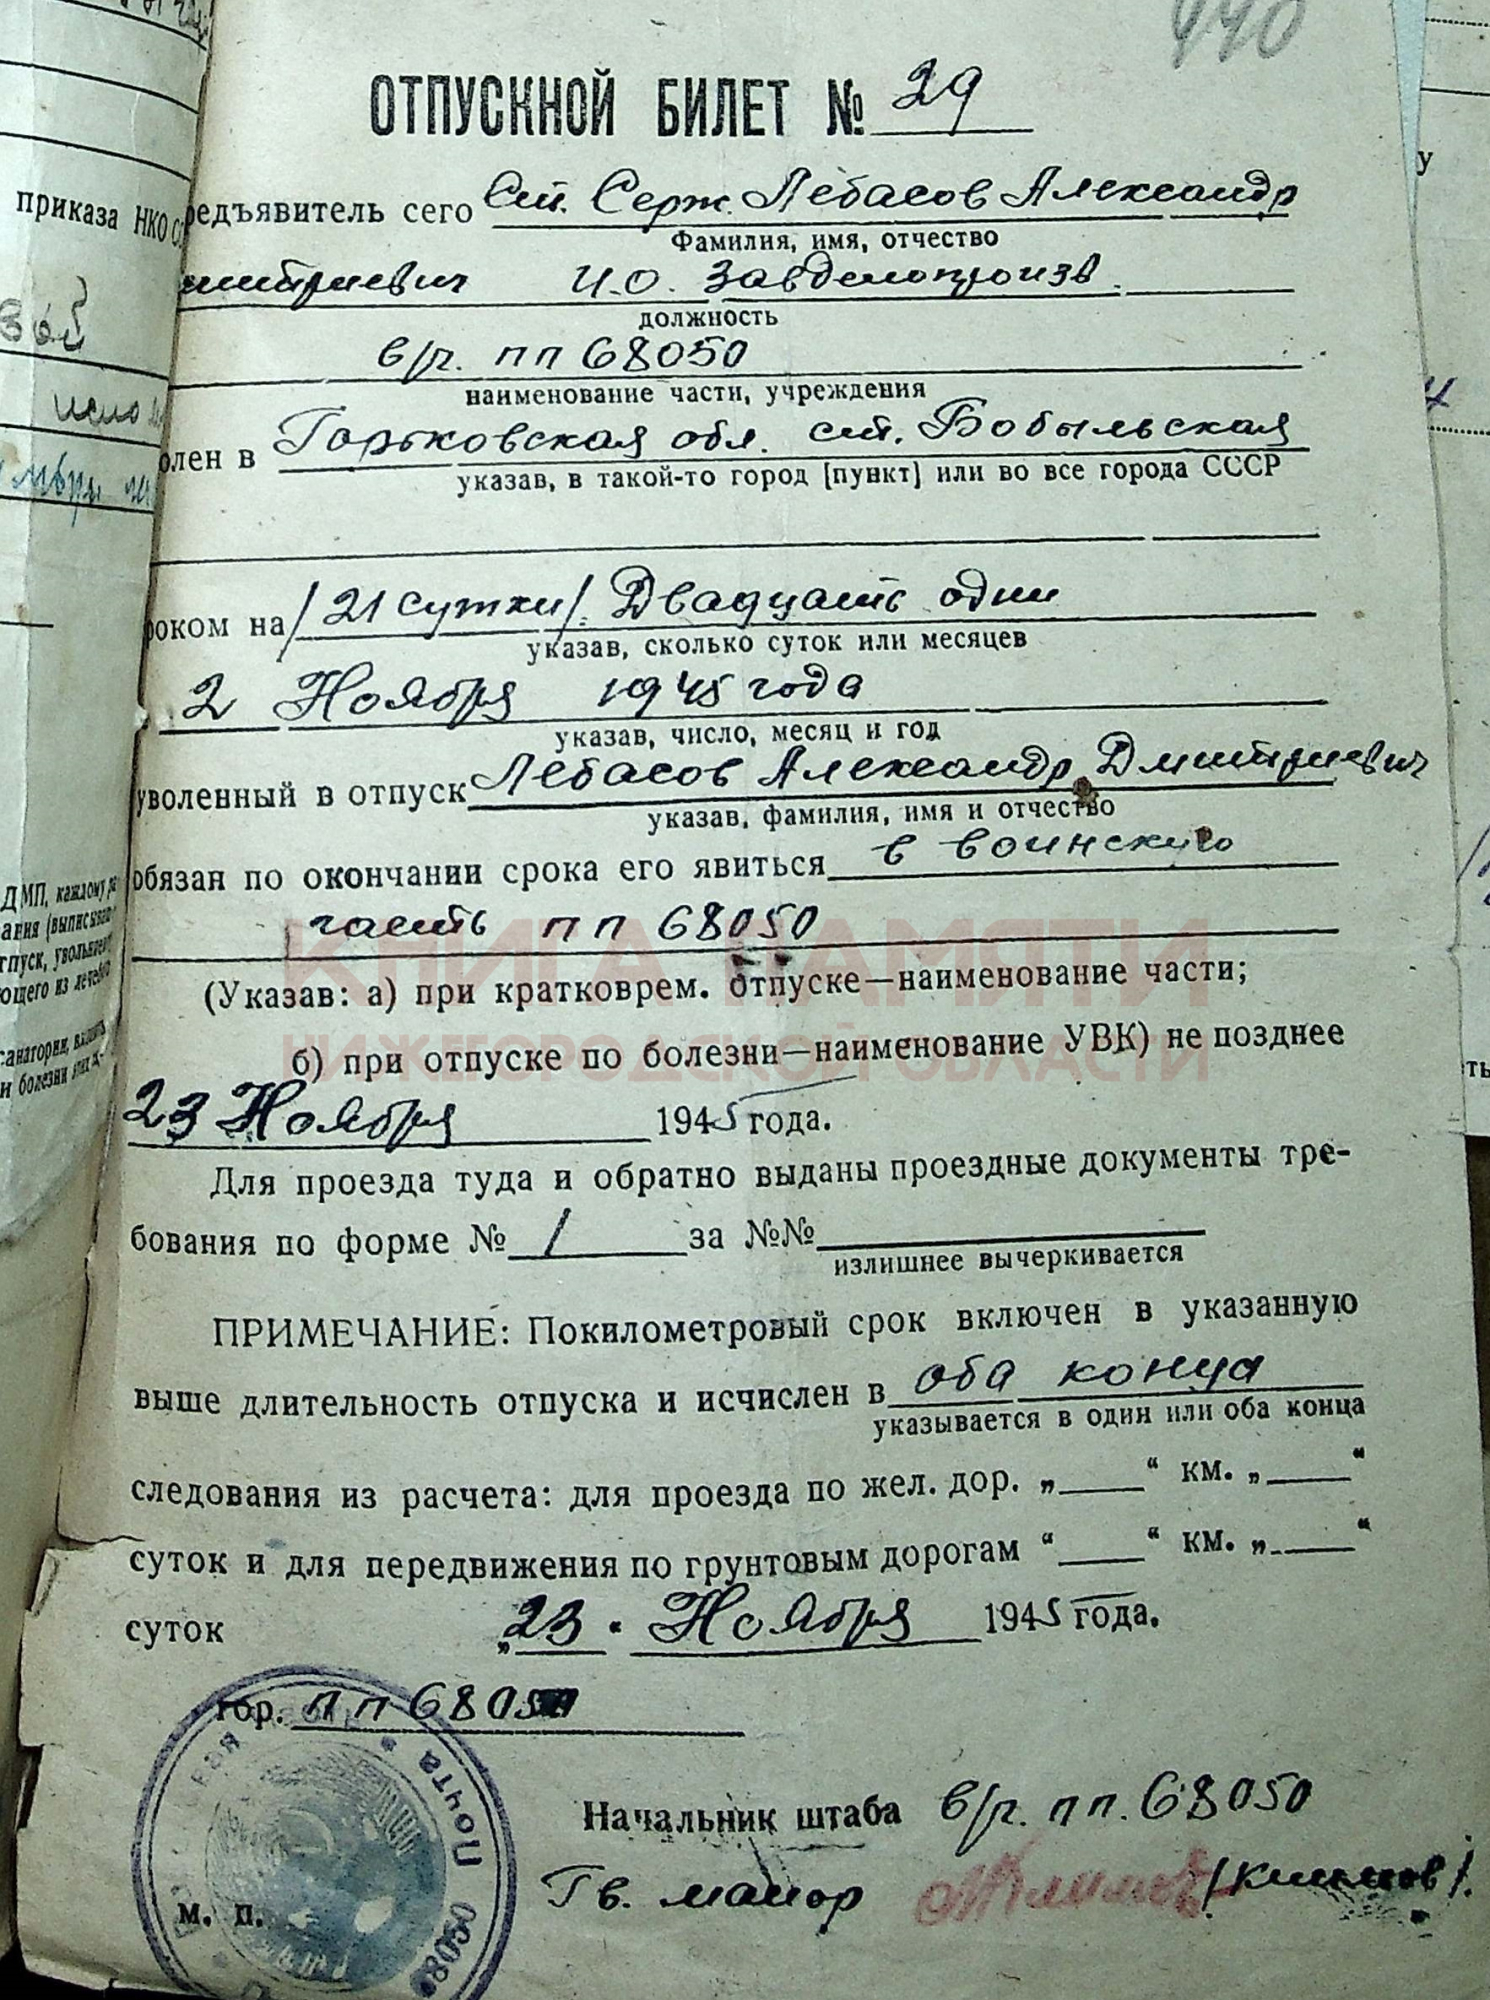 440
ОТПУСКНОЙ БИЛЕТ № 29
редъявитель сего Ст. Серж. Лебасов Александр
Фамилия, имя, отчество
митриевич И.О. Завделопроизв.
должность
в/ч. пп 68050
наименование части, учреждения
олен в Горьковская обл. ст. Бобыльская
указав, в такой-то город [пункт] или во все города СССР
роком на /21 сутки/. Двадцать одни
указав, сколько суток или месяцев
2 Ноября 1945 года
указав, число, месяц и год
уволенный в отпуск Лебасов Александр Дмитриевич
указав, фамилия, имя и отчество
обязан по окончании срока его явиться в воинскую
часть пп 68050
(Указав: а) при кратковрем. отпуске—наименование части;
б) при отпуске по болезни—наименование УВК) не позднее
23 Ноября 1945 года.
Для проезда туда и обратно выданы проездные документы тре-
бования по форме № 1 за №№
излишнее вычеркивается
ПРИМЕЧАНИЕ: Покилометровый срок включен в указанную
выше длительность отпуска и исчислен в оба конца
указывается в один или оба конца
следования из расчета: для проезда по жел. дор. „ “ км. „ “
суток и для передвижения по грунтовым дорогам “ “ км. „ “
суток „23“ Ноября 1945 года.
гор. пп 68050
Начальник штаба в/ч. пп. 68050
Гв. майор Климов /Климов/.
м. п.
Почта 68050
приказа НКО
ДМП, каждому
ания (выписыва
тпуск, увольняе
ющего из лечеб
санатории,
и болезни этих
КНИГА ПАМЯТИ
НИЖЕГОРОДСКОЙ ОБЛАСТИ